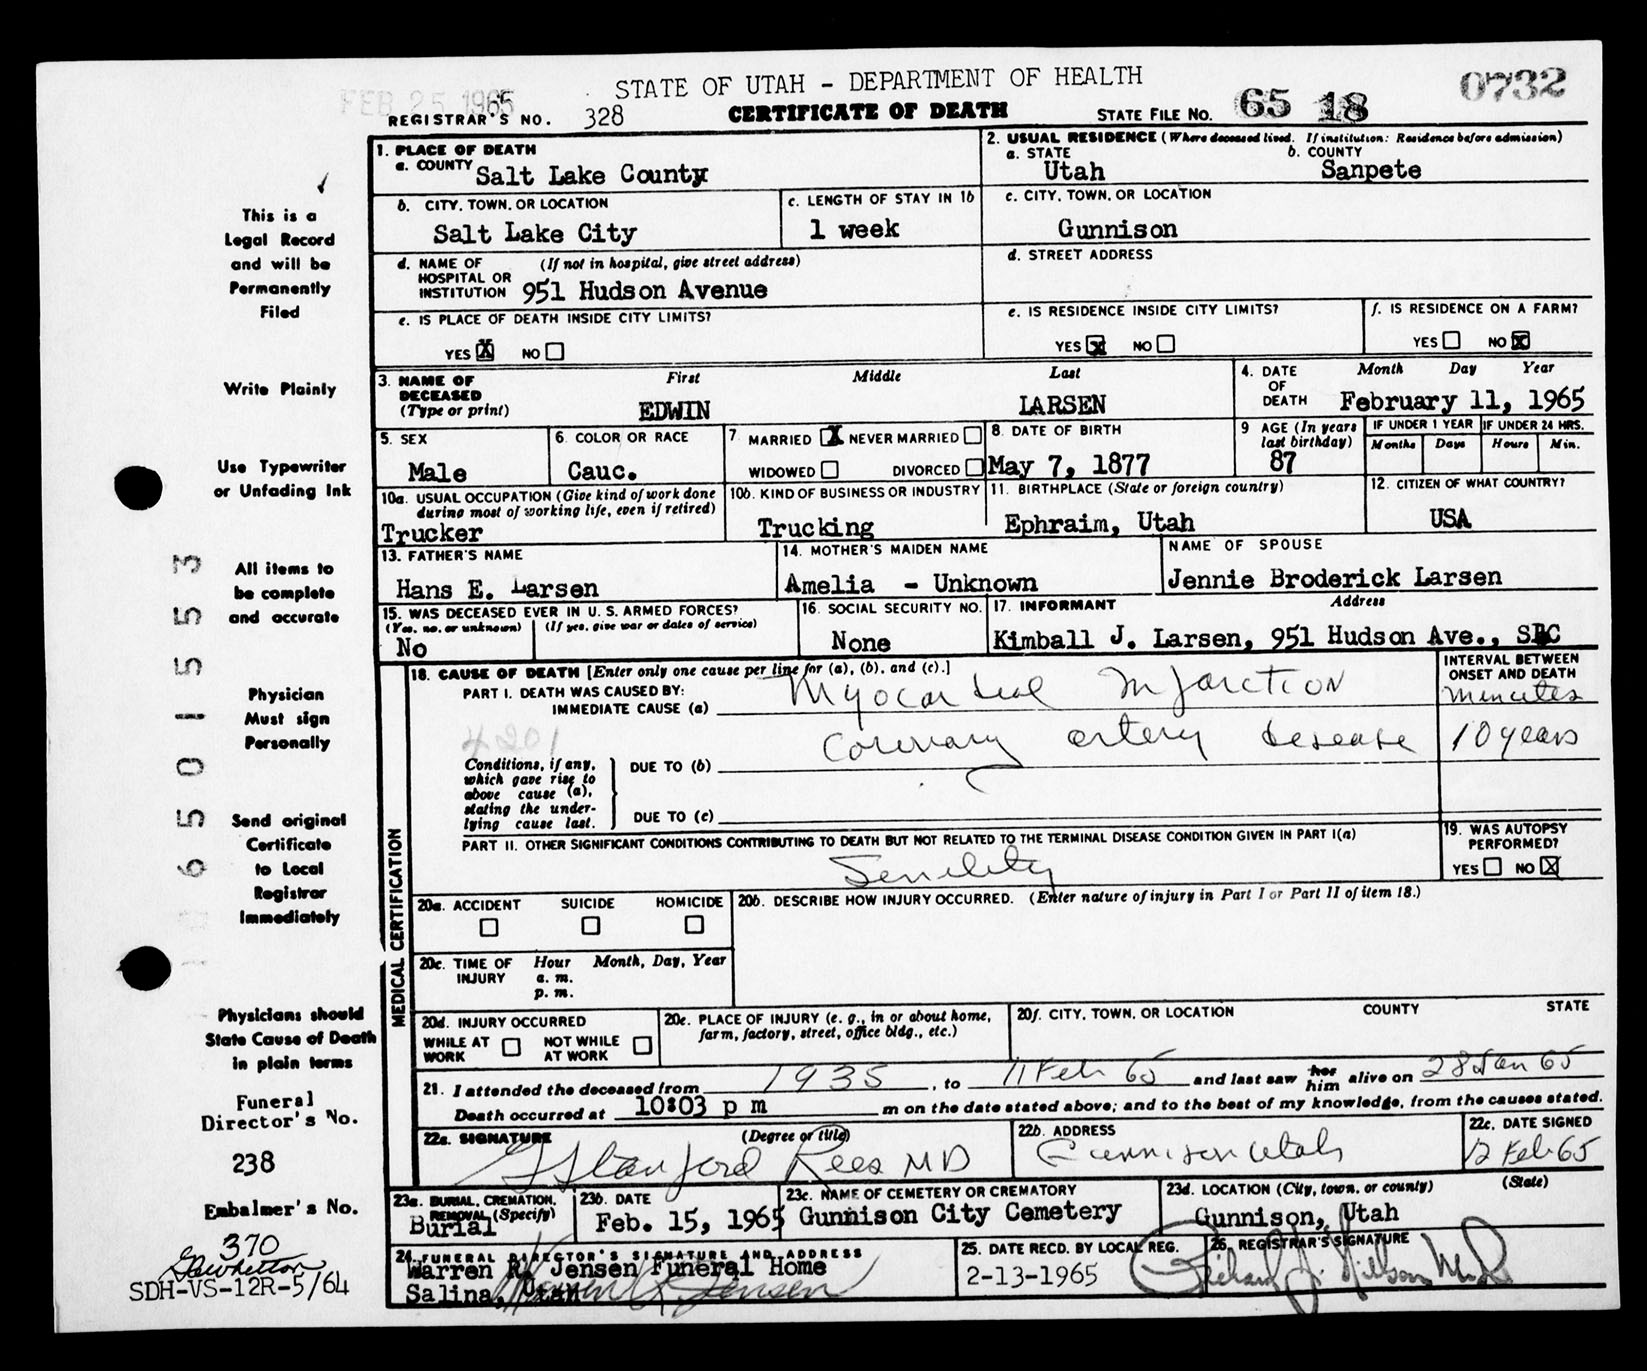 STATE OF UTAH - DEPARTMENT OF HEALTH
FEB 25 1965
0732
REGISTRAR'S NO. 328
CERTIFICATE OF DEATH
STATE FILE NO. 65 18
1. PLACE OF DEATH
a. COUNTY Salt Lake County
2. USUAL RESIDENCE (Where deceased lived. If institution: Residence before admission)
a. STATE Utah
b. COUNTY Sanpete
b. CITY, TOWN, OR LOCATION
Salt Lake City
c. LENGTH OF STAY IN 1b
1 week
c. CITY, TOWN, OR LOCATION
Gunnison
d. NAME OF HOSPITAL OR INSTITUTION (If not in hospital, give street address)
951 Hudson Avenue
d. STREET ADDRESS
e. IS PLACE OF DEATH INSIDE CITY LIMITS?
YES X NO
e. IS RESIDENCE INSIDE CITY LIMITS?
YES X NO
f. IS RESIDENCE ON A FARM?
YES NO X
3. NAME OF DECEASED (Type or print)
First Middle Last
EDWIN LARSEN
4. DATE OF DEATH
Month Day Year
February 11, 1965
5. SEX
Male
6. COLOR OR RACE
Cauc.
7. MARRIED X NEVER MARRIED
WIDOWED DIVORCED
8. DATE OF BIRTH
May 7, 1877
9 AGE (In years last birthday)
87
IF UNDER 1 YEAR
Months Days
IF UNDER 24 HRS.
Hours Min.
10a. USUAL OCCUPATION (Give kind of work done during most of working life, even if retired)
Trucker
10b. KIND OF BUSINESS OR INDUSTRY
Trucking
11. BIRTHPLACE (State or foreign country)
Ephraim, Utah
12. CITIZEN OF WHAT COUNTRY?
USA
13. FATHER'S NAME
Hans E. Larsen
14. MOTHER'S MAIDEN NAME
Amelia - Unknown
NAME OF SPOUSE
Jennie Broderick Larsen
15. WAS DECEASED EVER IN U. S. ARMED FORCES?
(Yes, no, or unknown) (If yes, give war or dates of service)
No
16. SOCIAL SECURITY NO.
None
17. INFORMANT Address
Kimball J. Larsen, 951 Hudson Ave., SLC
18. CAUSE OF DEATH [Enter only one cause per line for (a), (b), and (c).]
INTERVAL BETWEEN ONSET AND DEATH
PART I. DEATH WAS CAUSED BY:
IMMEDIATE CAUSE (a) Myocardial Infarction minutes
4201
Conditions, if any, which gave rise to above cause (a), stating the underlying cause last.
DUE TO (b) Coronary artery disease 10 years
DUE TO (c)
PART II. OTHER SIGNIFICANT CONDITIONS CONTRIBUTING TO DEATH BUT NOT RELATED TO THE TERMINAL DISEASE CONDITION GIVEN IN PART I(a)
Senility
19. WAS AUTOPSY PERFORMED?
YES NO X
MEDICAL CERTIFICATION
20a. ACCIDENT SUICIDE HOMICIDE
20b. DESCRIBE HOW INJURY OCCURRED. (Enter nature of injury in Part I or Part II of item 18.)
20c. TIME OF INJURY Hour Month, Day, Year
a. m.
p. m.
20d. INJURY OCCURRED
WHILE AT WORK NOT WHILE AT WORK
20e. PLACE OF INJURY (e. g., in or about home, farm, factory, street, office bldg., etc.)
20f. CITY, TOWN, OR LOCATION COUNTY STATE
21. I attended the deceased from 1935, to 11 Feb 65 and last saw her him alive on 28 Jan 65
Death occurred at 10:03 p m m on the date stated above; and to the best of my knowledge, from the causes stated.
22a. SIGNATURE (Degree or title)
G Stanford Rees MD
22b. ADDRESS
Gunnison Utah
22c. DATE SIGNED
12 Feb 65
23a. BURIAL, CREMATION, REMOVAL (Specify)
Burial
23b. DATE
Feb. 15, 1965
23c. NAME OF CEMETERY OR CREMATORY
Gunnison City Cemetery
23d. LOCATION (City, town, or county) (State)
Gunnison, Utah
24. FUNERAL DIRECTOR'S SIGNATURE AND ADDRESS
Warren R. Jensen Funeral Home
Salina, Utah
25. DATE RECD. BY LOCAL REG.
2-13-1965
26. REGISTRAR'S SIGNATURE
This is a
Legal Record
and will be
Permanently
Filed
Write Plainly
Use Typewriter
or Unfading Ink
All items to
be complete
and accurate
Physician
Must sign
Personally
Send original
Certificate
to Local
Registrar
Immediately
Physicians should
State Cause of Death
in plain terms
Funeral
Director's No.
238
Embalmer's No.
370
SDH-VS-12R-5/64
6501553